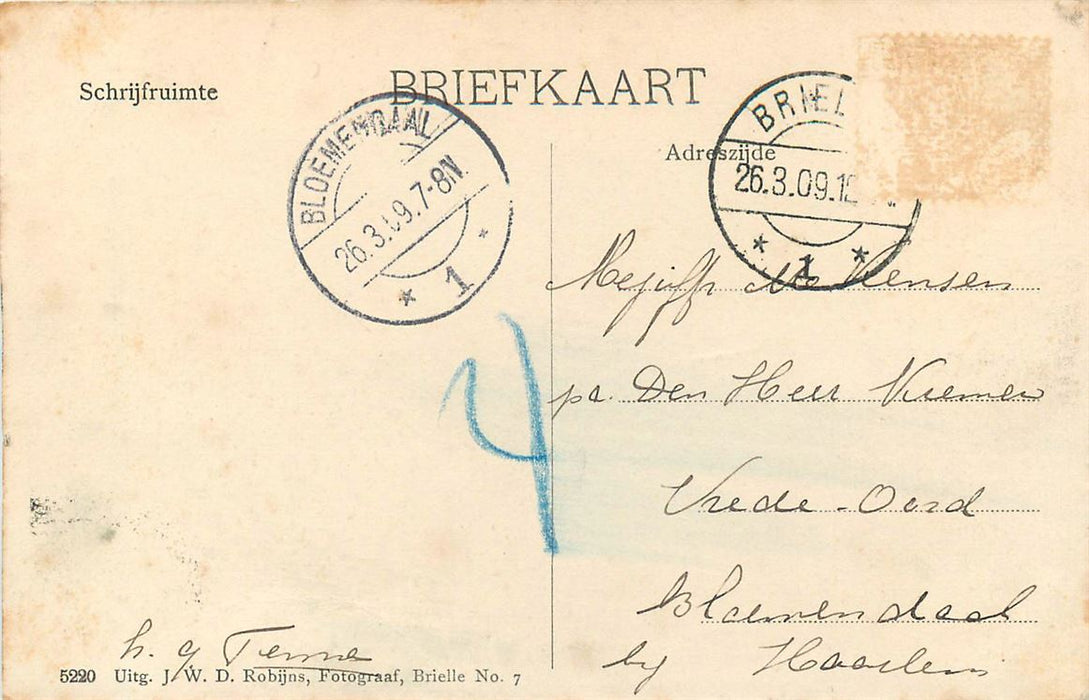 Schrijfruimte
BRIEFKAART
Adreszijde
BLOEMENDAAL
26.3.09.7-8N.
1
BRIEL
26.3.09.12
1
Mejuffr
pa. Den Heer Kremer
Vrede-Oord
Bloemendaal
by Haarlem
4
h. g.
5220 Uitg. J. W. D. Robijns, Fotograaf, Brielle No. 7